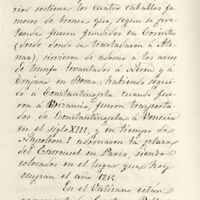 rior sostiene los cuatro caballos fa-
mosos de bronce que, segun se pre-
tende fueron fundidos en Corinto
(desde donde se trasladaron a Ate-
nas), sirvieron de adorno a los arcos
de triunfo levantados á Nerón y á
Trajano en Roma: habiendo seguido
á Constantinopla cuando fueron
á Bizancio, fueron trasporta-
dos de Constantinopla á Venecia
en el siglo XIII, y en tiempo de
Napoleon I adornaron la plaza
del Carrousel en Paris, siendo
colocados en el lugar que hoy
ocupan el año 1815.
En el Vaticano están